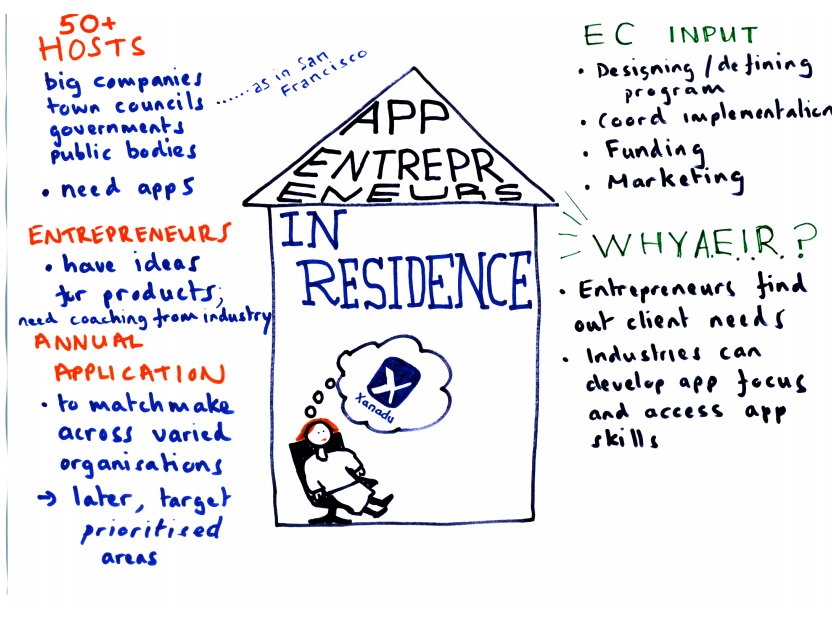 50+
HOSTS
big companies
town councils ......as in San
Francisco
governments
public bodies
• need apps
ENTREPRENEURS
• have ideas
for products;
need coaching from industry
ANNUAL
APPLICATION
• to matchmake
across varied
organisations
→ later, target
prioritised
areas
APP
ENTREPR
ENEURS
IN
RESIDENCE
X
Xanadu
EC INPUT
• Designing/defining
program
• Coord implementation
• Funding
• Marketing
WHY A.E.I.R.?
• Entrepreneurs find
out client needs
• Industries can
develop app focus
and access app
skills